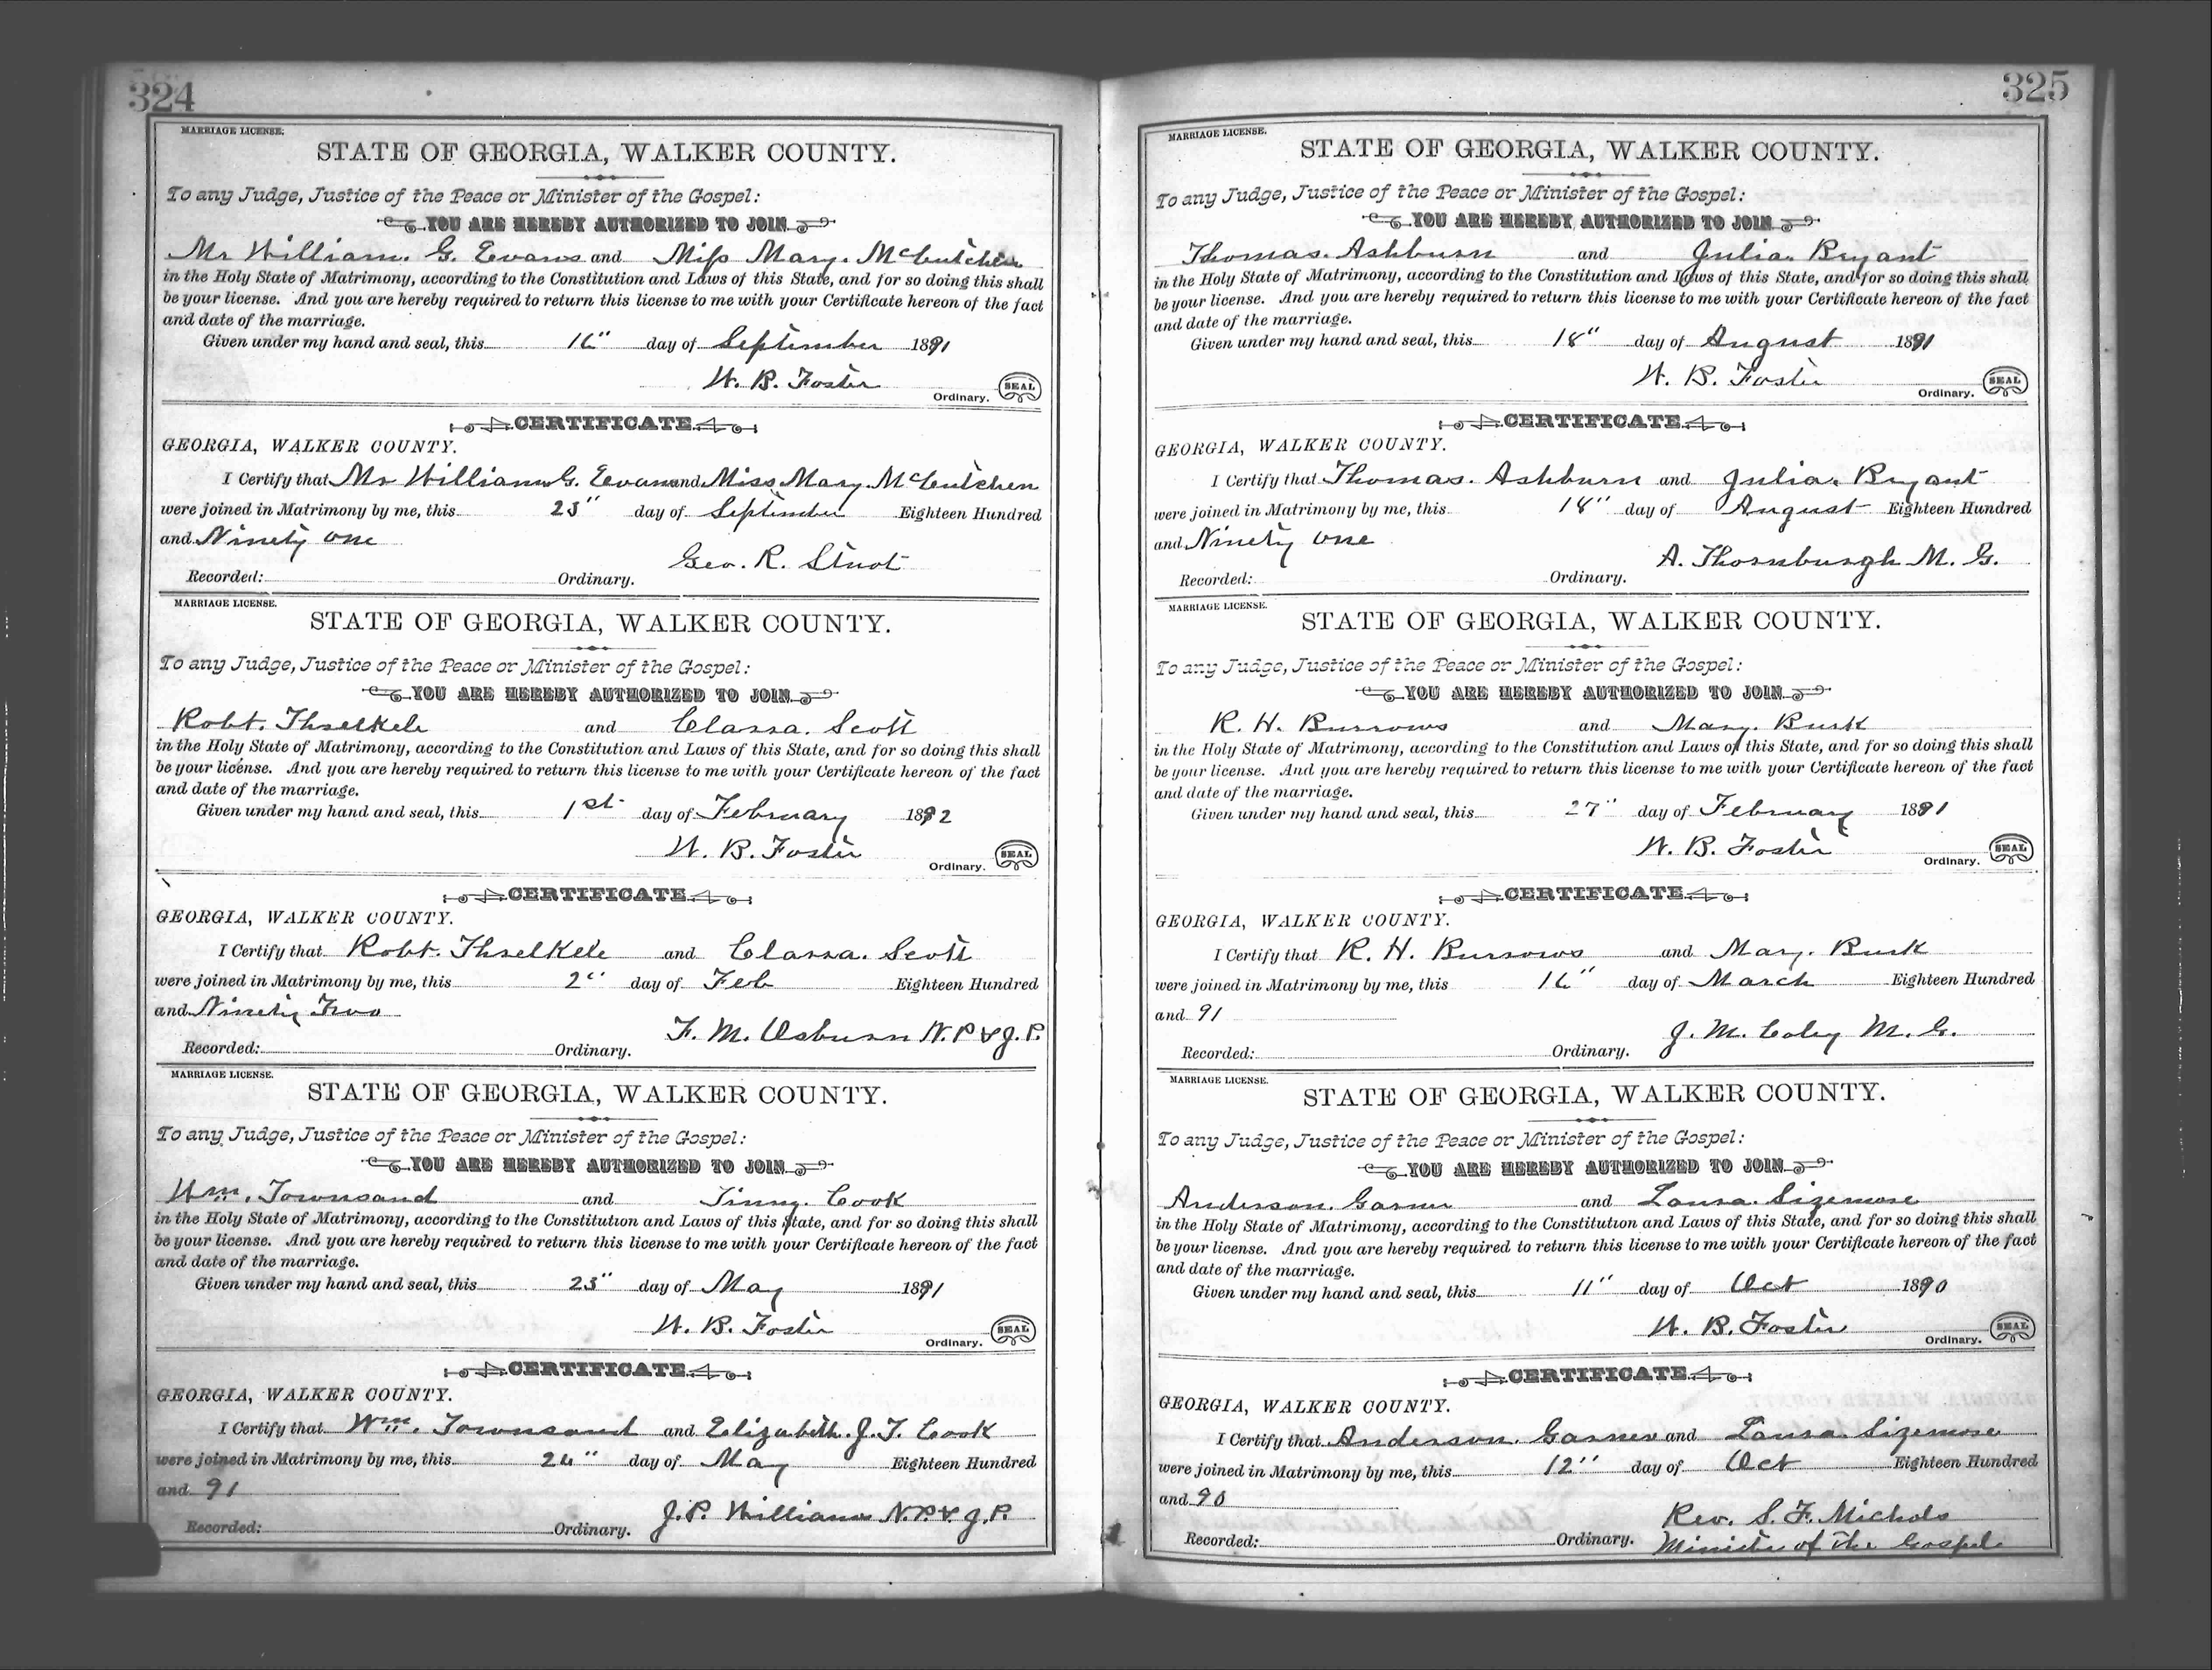 324
MARRIAGE LICENSE.
STATE OF GEORGIA, WALKER COUNTY.
To any Judge, Justice of the Peace or Minister of the Gospel:
YOU ARE HEREBY AUTHORIZED TO JOIN
Mr William. G. Evans and Miss Mary. McCutchen
in the Holy State of Matrimony, according to the Constitution and Laws of this State, and for so doing this shall
be your license. And you are hereby required to return this license to me with your Certificate hereon of the fact
and date of the marriage.
Given under my hand and seal, this 16" day of September 1891
W. B. Foster
Ordinary. SEAL
CERTIFICATE
GEORGIA, WALKER COUNTY.
I Certify that Mr William G. Evans and Miss Mary. McCutchen
were joined in Matrimony by me, this 23" day of September Eighteen Hundred
and Ninety one
Geo. R. Stuot
Recorded: Ordinary.
MARRIAGE LICENSE.
STATE OF GEORGIA, WALKER COUNTY.
To any Judge, Justice of the Peace or Minister of the Gospel:
YOU ARE HEREBY AUTHORIZED TO JOIN
Robt. Threlkele and Clarra. Scott
in the Holy State of Matrimony, according to the Constitution and Laws of this State, and for so doing this shall
be your license. And you are hereby required to return this license to me with your Certificate hereon of the fact
and date of the marriage.
Given under my hand and seal, this 1st day of February 1892
W. B. Foster
Ordinary. SEAL
CERTIFICATE
GEORGIA, WALKER COUNTY.
I Certify that Robt. Threlkele and Clarra. Scott
were joined in Matrimony by me, this 2" day of Feb Eighteen Hundred
and Ninety Two
F. M. Osburn N.P & J.P.
Recorded: Ordinary.
MARRIAGE LICENSE.
STATE OF GEORGIA, WALKER COUNTY.
To any Judge, Justice of the Peace or Minister of the Gospel:
YOU ARE HEREBY AUTHORIZED TO JOIN
Wm. Townsand and Tinny. Cook
in the Holy State of Matrimony, according to the Constitution and Laws of this State, and for so doing this shall
be your license. And you are hereby required to return this license to me with your Certificate hereon of the fact
and date of the marriage.
Given under my hand and seal, this 23" day of May 1891
W. B. Foster
Ordinary. SEAL
CERTIFICATE
GEORGIA, WALKER COUNTY.
I Certify that Wm. Townsand and Elizabeth. J. T. Cook
were joined in Matrimony by me, this 24" day of May Eighteen Hundred
and 91
J. P. Williams N.P. & J.P.
Recorded: Ordinary.
325
MARRIAGE LICENSE.
STATE OF GEORGIA, WALKER COUNTY.
To any Judge, Justice of the Peace or Minister of the Gospel:
YOU ARE HEREBY AUTHORIZED TO JOIN
Thomas. Ashburn and Julia. Bryant
in the Holy State of Matrimony, according to the Constitution and Laws of this State, and for so doing this shall
be your license. And you are hereby required to return this license to me with your Certificate hereon of the fact
and date of the marriage.
Given under my hand and seal, this 18" day of August 1891
W. B. Foster
Ordinary. SEAL
CERTIFICATE
GEORGIA, WALKER COUNTY.
I Certify that Thomas. Ashburn and Julia. Bryant
were joined in Matrimony by me, this 18" day of August Eighteen Hundred
and Ninety one
A. Thornburgh M. G.
Recorded: Ordinary.
MARRIAGE LICENSE.
STATE OF GEORGIA, WALKER COUNTY.
To any Judge, Justice of the Peace or Minister of the Gospel:
YOU ARE HEREBY AUTHORIZED TO JOIN
R. H. Burrows and Mary. Burk
in the Holy State of Matrimony, according to the Constitution and Laws of this State, and for so doing this shall
be your license. And you are hereby required to return this license to me with your Certificate hereon of the fact
and date of the marriage.
Given under my hand and seal, this 27" day of February 1891
W. B. Foster
Ordinary. SEAL
CERTIFICATE
GEORGIA, WALKER COUNTY.
I Certify that R. H. Burrows and Mary. Burk
were joined in Matrimony by me, this 16" day of March Eighteen Hundred
and 91
J. M. Coley M. G.
Recorded: Ordinary.
MARRIAGE LICENSE.
STATE OF GEORGIA, WALKER COUNTY.
To any Judge, Justice of the Peace or Minister of the Gospel:
YOU ARE HEREBY AUTHORIZED TO JOIN
Anderson. Garner and Laura. Sizemore
in the Holy State of Matrimony, according to the Constitution and Laws of this State, and for so doing this shall
be your license. And you are hereby required to return this license to me with your Certificate hereon of the fact
and date of the marriage.
Given under my hand and seal, this 11" day of Oct 1890
W. B. Foster
Ordinary. SEAL
CERTIFICATE
GEORGIA, WALKER COUNTY.
I Certify that Anderson. Garner and Laura. Sizemore
were joined in Matrimony by me, this 12" day of Oct Eighteen Hundred
and 90
Rev. S. F. Michols
Recorded: Ordinary. Minister of the Gospel.